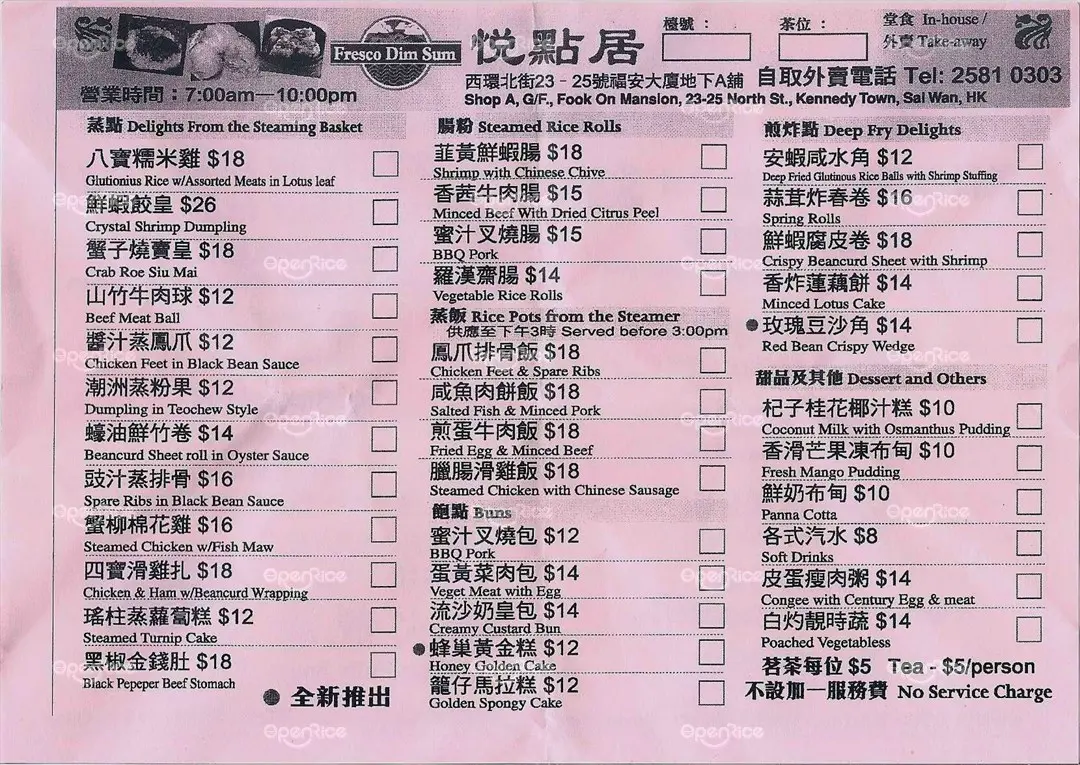 Fresco Dim Sum
悅點居
檯號：
茶位：
堂食 In-house /
外賣 Take-away
營業時間：7:00am—10:00pm
西環北街23－25號福安大廈地下A舖
自取外賣電話 Tel: 2581 0303
Shop A, G/F., Fook On Mansion, 23-25 North St., Kennedy Town, Sai Wan, HK
蒸點 Delights From the Steaming Basket
八寶糯米雞 $18
Glutionius Rice w/Assorted Meats in Lotus leaf
鮮蝦餃皇 $26
Crystal Shrimp Dumpling
蟹子燒賣皇 $18
Crab Roe Siu Mai
山竹牛肉球 $12
Beef Meat Ball
醬汁蒸鳳爪 $12
Chicken Feet in Black Bean Sauce
潮洲蒸粉果 $12
Dumpling in Teochew Style
蠔油鮮竹卷 $14
Beancurd Sheet roll in Oyster Sauce
豉汁蒸排骨 $16
Spare Ribs in Black Bean Sauce
蟹柳棉花雞 $16
Steamed Chicken w/Fish Maw
四寶滑雞扎 $18
Chicken & Ham w/Beancurd Wrapping
瑤柱蒸蘿蔔糕 $12
Steamed Turnip Cake
黑椒金錢肚 $18
Black Pepeper Beef Stomach
● 全新推出
腸粉 Steamed Rice Rolls
韮黃鮮蝦腸 $18
Shrimp with Chinese Chive
香茜牛肉腸 $15
Minced Beef With Dried Citrus Peel
蜜汁叉燒腸 $15
BBQ Pork
羅漢齋腸 $14
Vegetable Rice Rolls
蒸飯 Rice Pots from the Steamer
供應至下午3時 Served before 3:00pm
鳳爪排骨飯 $18
Chicken Feet & Spare Ribs
咸魚肉餅飯 $18
Salted Fish & Minced Pork
煎蛋牛肉飯 $18
Fried Egg & Minced Beef
臘腸滑雞飯 $18
Steamed Chicken with Chinese Sausage
飽點 Buns
蜜汁叉燒包 $12
BBQ Pork
蛋黃菜肉包 $14
Veget Meat with Egg
流沙奶皇包 $14
Creamy Custard Bun
● 蜂巢黃金糕 $12
Honey Golden Cake
籠仔馬拉糕 $12
Golden Spongy Cake
煎炸點 Deep Fry Delights
安蝦咸水角 $12
Deep Fried Glutinous Rice Balls with Shrimp Stuffing
蒜茸炸春卷 $16
Spring Rolls
鮮蝦腐皮卷 $18
Crispy Beancurd Sheet with Shrimp
香炸蓮藕餅 $14
Minced Lotus Cake
● 玫瑰豆沙角 $14
Red Bean Crispy Wedge
甜品及其他 Dessert and Others
杞子桂花椰汁糕 $10
Coconut Milk with Osmanthus Pudding
香滑芒果凍布甸 $10
Fresh Mango Pudding
鮮奶布甸 $10
Panna Cotta
各式汽水 $8
Soft Drinks
皮蛋瘦肉粥 $14
Congee with Century Egg & meat
白灼靚時蔬 $14
Poached Vegetabless
茗茶每位 $5 Tea - $5/person
不設加一服務費 No Service Charge
OpenRice